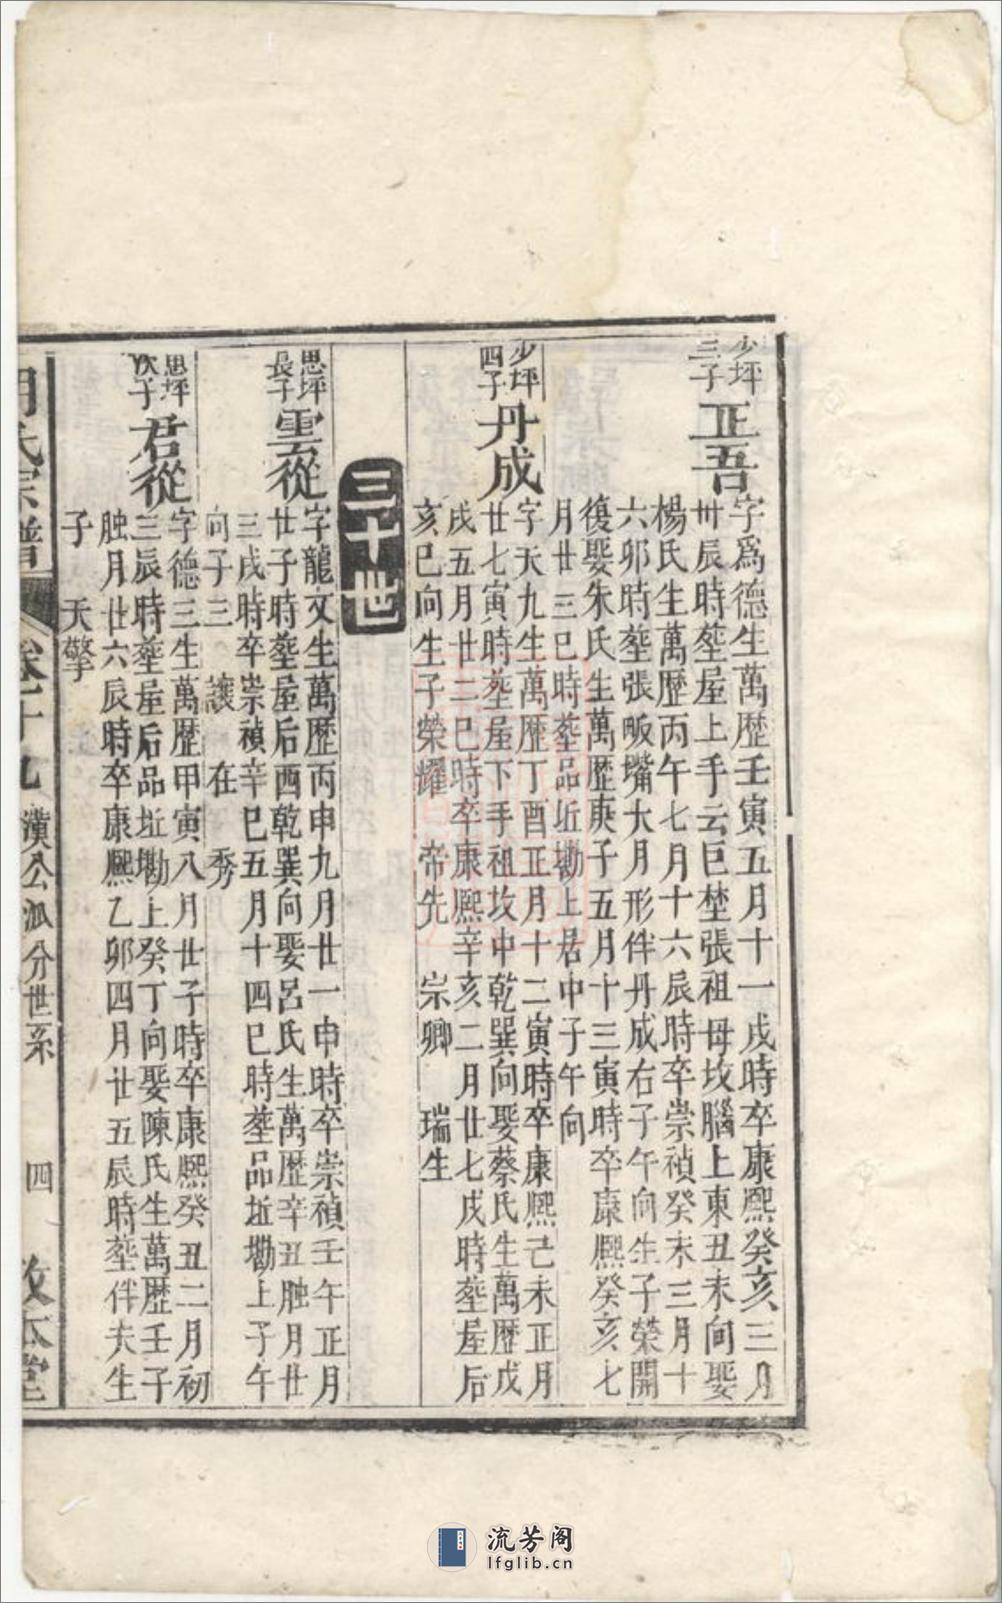 少坪
三子
正吾
字爲德生萬歷壬寅五月十一戌時卒康熙癸亥三月
卅辰時塟屋上手云巨埜張祖母坟腦上東丑未向娶
楊氏生萬歷丙午七月十六辰時卒崇禎癸未三月十
六卯時塟張畈嘴大月形伴丹成右子午向生子榮開
復娶朱氏生萬歷庚子五月十三寅時卒康熙癸亥七
月廿三巳時塟品坵墈上居中子午向
少坪
四子
丹成
字天九生萬歷丁酉正月十二寅時卒康熙己未正月
廿七寅時塟屋下手祖坟中乾巽向娶蔡氏生萬歷戊
戌五月廿二巳時卒康熙辛亥二月廿七戌時塟屋后
亥巳向生子榮耀 帝先 宗卿 瑞生
三十世
思坪
長子
雲從
字龍文生萬歷丙申九月廿一申時卒崇禎壬午正月
廿子時塟屋后酉乾巽向娶呂氏生萬歷辛丑腊月廿
三戌時卒崇禎辛巳五月十四巳時塟品坵墈上子午
向子三 讓 在 秀
思坪
次子
君從
字德三生萬歷甲寅八月廿子時卒康熙癸丑二月初
三辰時塟屋后品坵墈上癸丁向娶陳氏生萬歷壬子
腊月廿六辰時卒康熙乙卯四月廿五辰時塟伴夫生
子 天擎
氏宗譜 卷十九 漢公派分世系 四 敦本堂
流芳阁
lfglib.cn